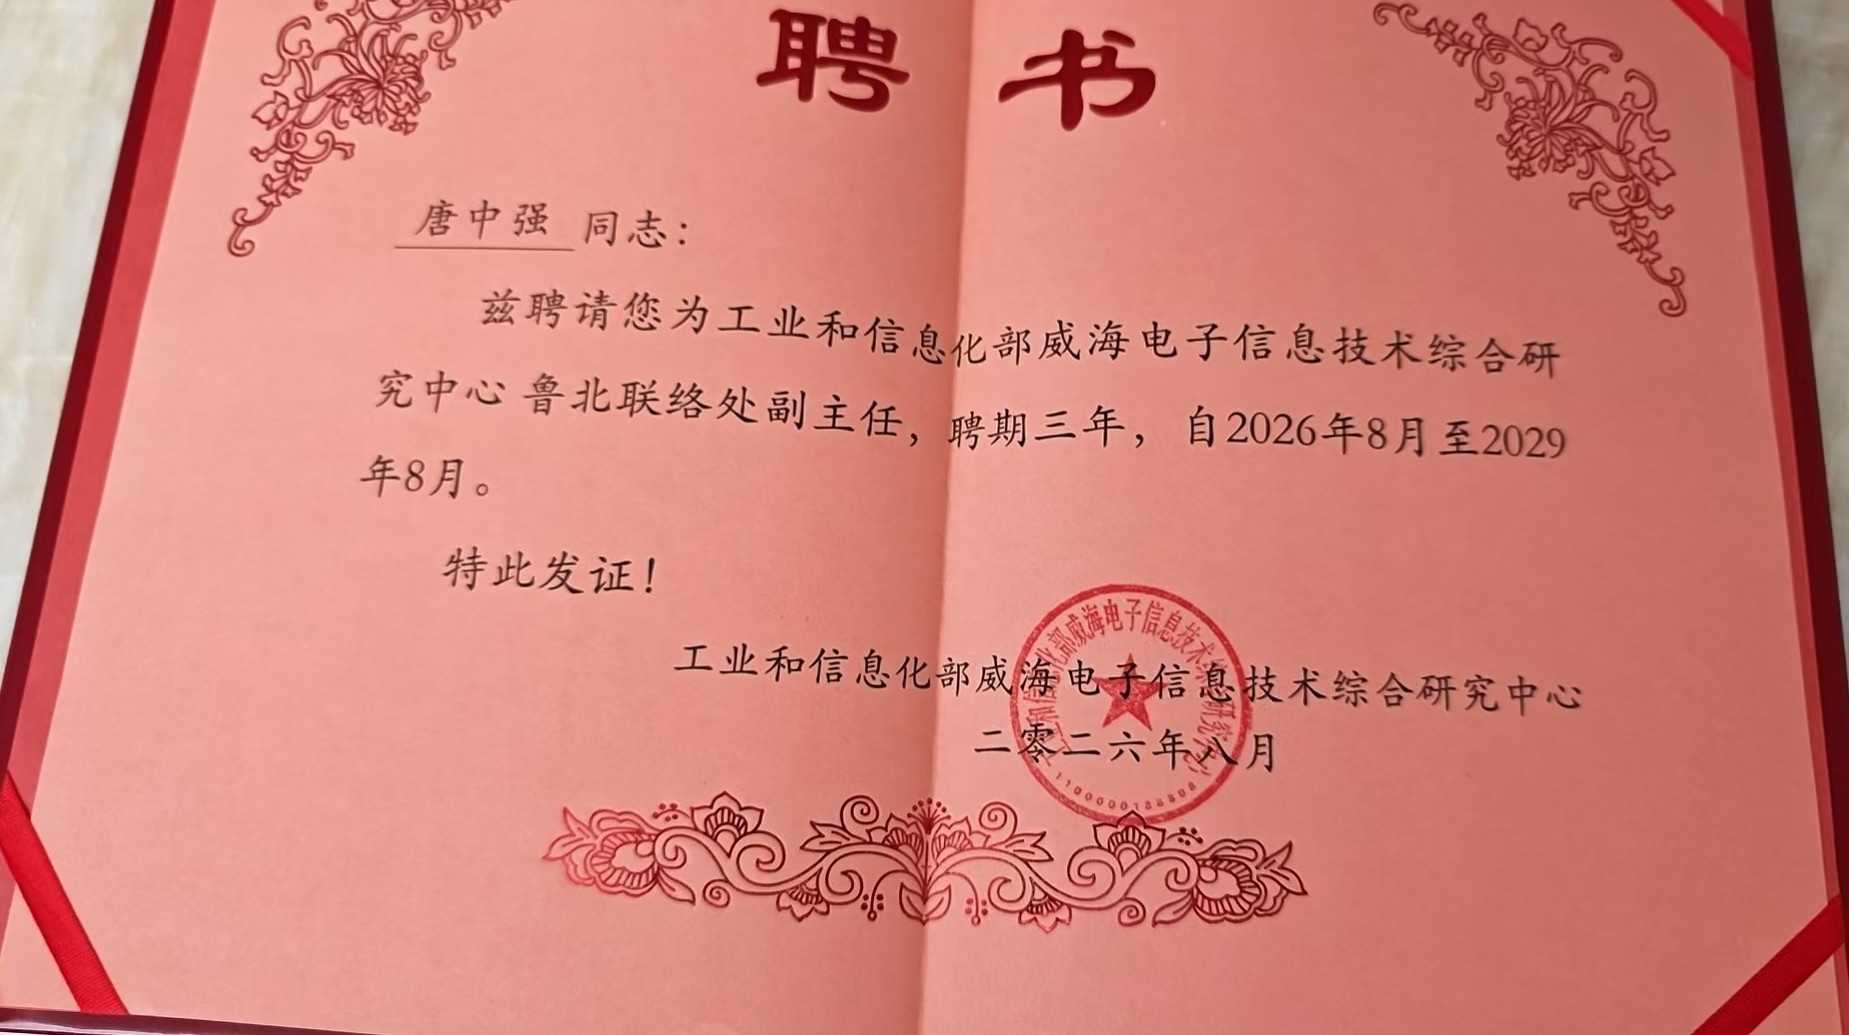 聘书
唐中强 同志：
兹聘请您为工业和信息化部威海电子信息技术综合研
究中心 鲁北联络处副主任，聘期三年，自2026年8月至2029
年8月。
特此发证！
工业和信息化部威海电子信息技术综合研究中心
二零二六年八月
工业和信息化部威海电子信息技术综合研究中心